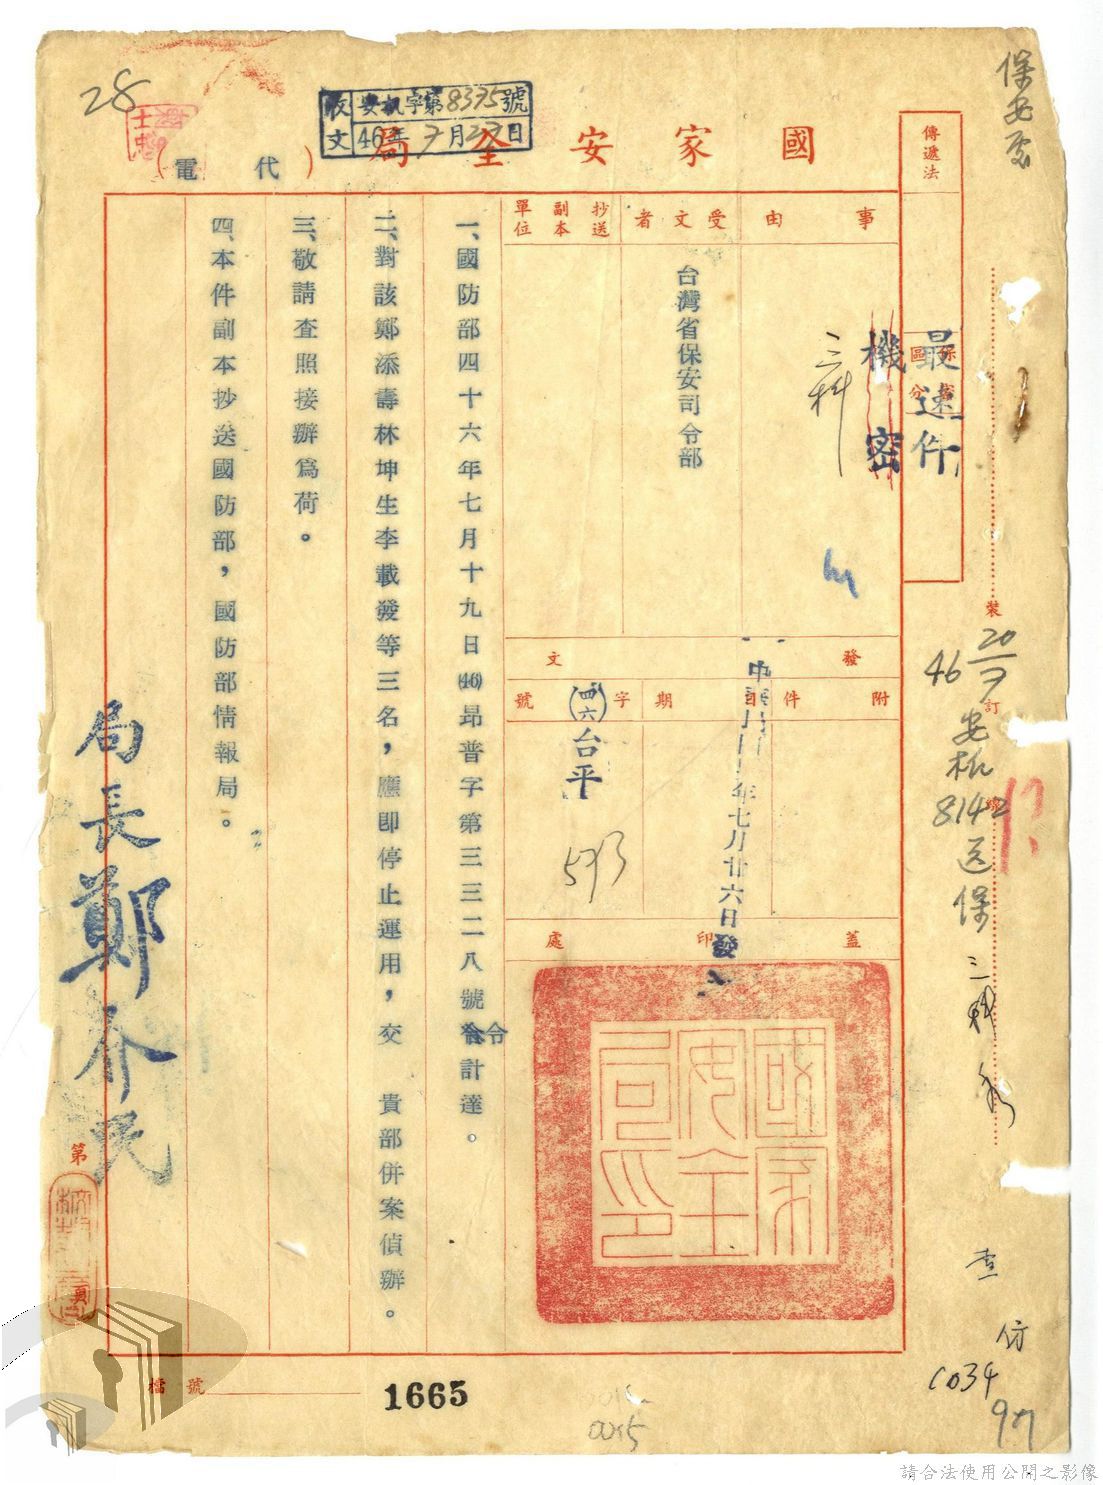 保安處
28
收文 安机字第8375號
46年7月27日
國家安全局
(代電)
傳遞法
保密區分
最速件
機密
事由
受文者
抄送副本單位
台灣省保安司令部
三科
發文
附件
日期
字號
年七月廿六日發
(四六)台平
593
蓋印處
國家安全局印
一、國防部四十六年七月十九日(46)昻普字第三三二八號令計達。
二、對該鄭添壽林坤生李載發等三名，應即停止運用，交 貴部併案偵辦。
三、敬請查照接辦爲荷。
四、本件副本抄送國防部，國防部情報局。
局長鄭介民
裝
訂
線
46 20/7
安机
8142
送保
三科
查
仿
1034
9/7
第
頁
檔號
1665
0025
請合法使用公開之影像